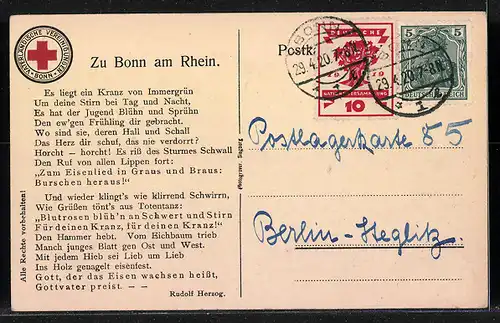 VATERLÄNDISCHE VEREINIGUNGEN
BONN
Zu Bonn am Rhein.
Es liegt ein Kranz von Immergrün
Um deine Stirn bei Tag und Nacht,
Es hat der Jugend Blühn und Sprühn
Den ew'gen Frühling dir gebracht.
Wo sind sie, deren Hall und Schall
Das Herz dir schuf, das nie verdorrt?
Horcht – horcht! Es riß des Sturmes Schwall
Den Ruf von allen Lippen fort:
„Zum Eisenlied in Graus und Braus:
Burschen heraus!“
Und wieder klingt's wie klirrend Schwirrn,
Wie Grüßen tönt's aus Totentanz:
„Blutrosen blüh'n an Schwert und Stirn
Für deinen Kranz, für deinen Kranz!“
Den Hammer hebt. Vom Eichbaum trieb
Manch junges Blatt gen Ost und West.
Mit jedem Hieb sei Lieb um Lieb
Ins Holz genagelt eisenfest.
Gott, der das Eisen wachsen heißt,
Gottvater preist. – –
Rudolf Herzog.
Alle Rechte vorbehalten!
Postk
DEUTSCHE
NATIONALVERSAMMLUNG
10
5 5
DEUTSCHES REICH
BONN
29.4.20.
29.4.20.7-8N.
Postlagerkarte 85
Berlin-Steglitz